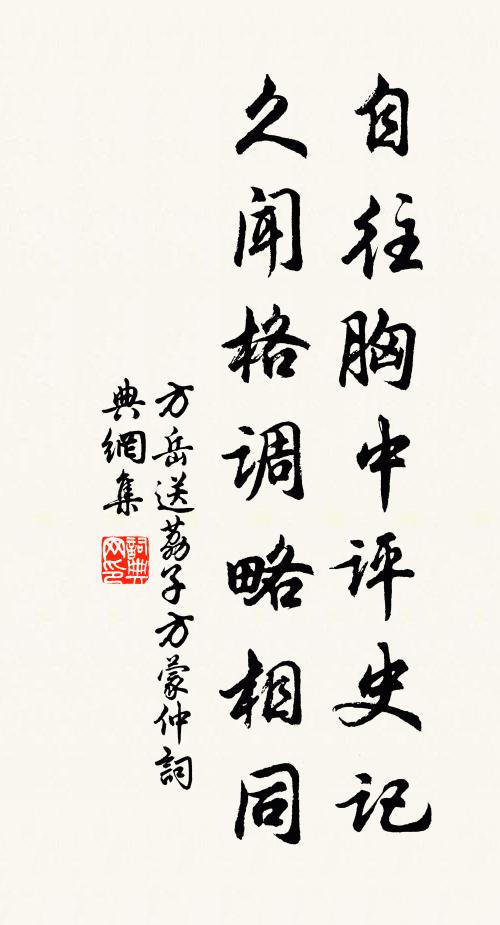 自往胸中评史记
久闻格调略相同
方岳送荔子方蒙仲詞
典網集
詞典网印